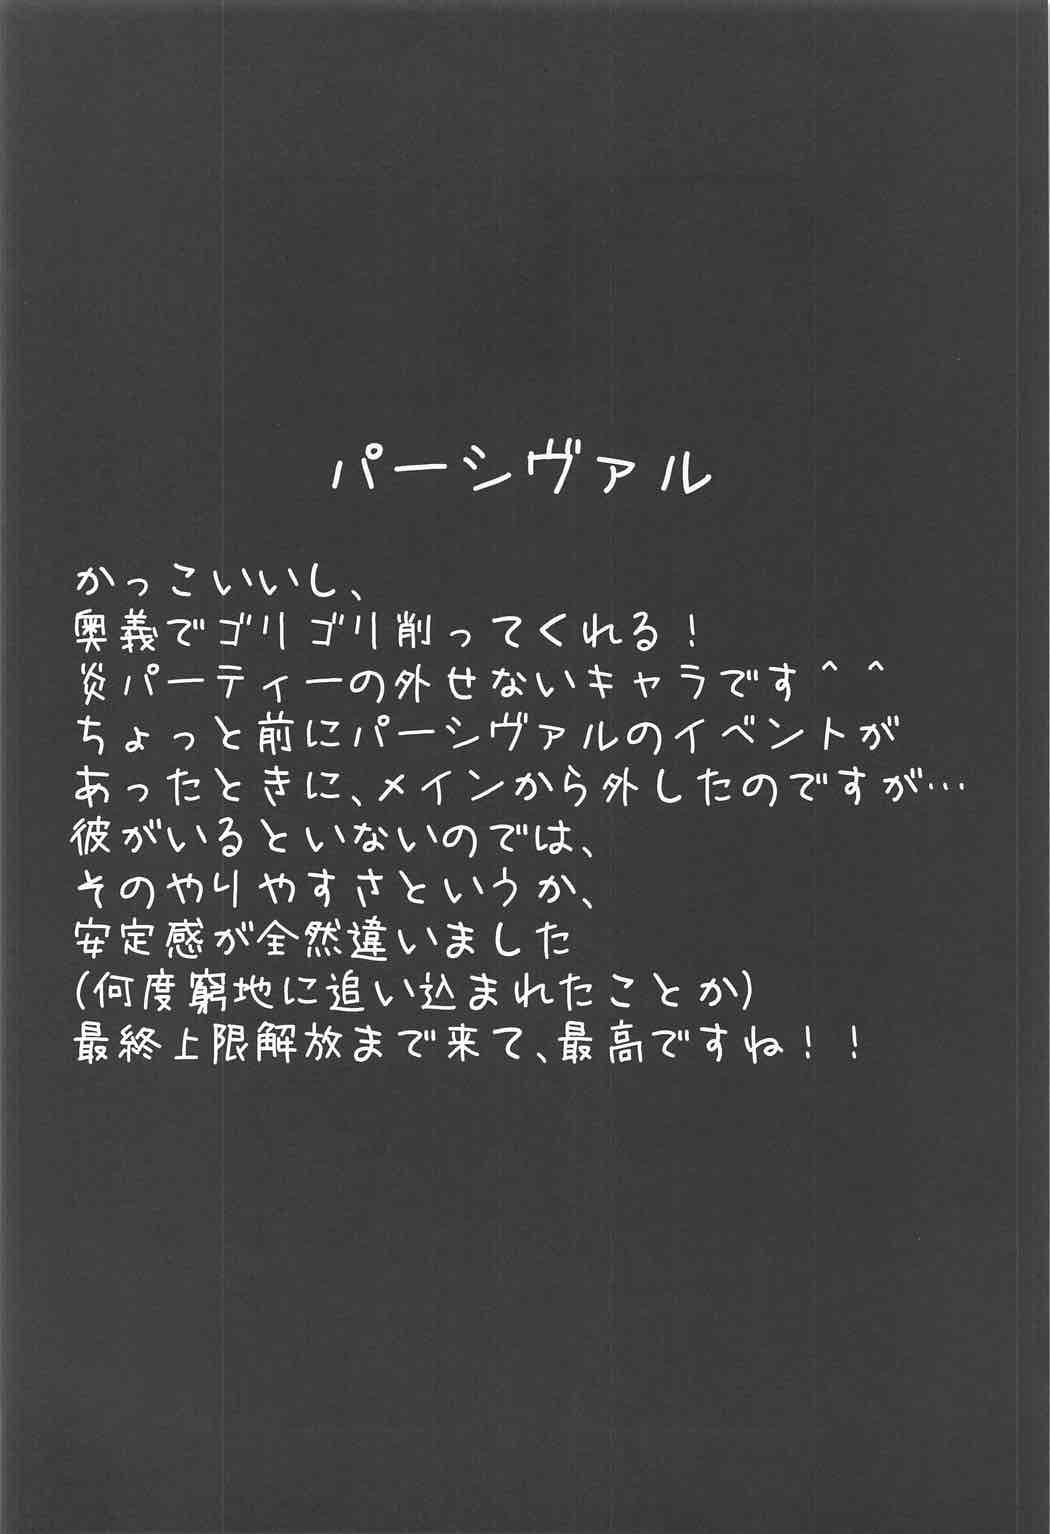 パーシヴァル
かっこいいし、
奥義でゴリゴリ削ってくれる！
炎パーティーの外せないキャラです＾＾
ちょっと前にパーシヴァルのイベントが
あったときに、メインから外したのですが…
彼がいるといないのでは、
そのやりやすさというか、
安定感が全然違いました
(何度窮地に追い込まれたことか)
最終上限解放まで来て、最高ですね！！